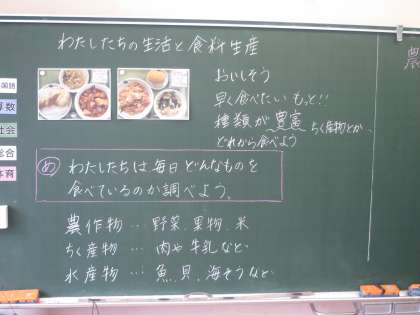 わたしたちの生活と食料生産
おいしそう
早く食べたい もっと!!
種類が豊富 ちく産物とか、
どれから食べよう
め わたしたちは毎日どんなものを
食べているのか調べよう。
農作物…野菜、果物、米
ちく産物…肉や牛乳など
水産物…魚、貝、海そうなど
国語
算数
社会
総合
体育
農